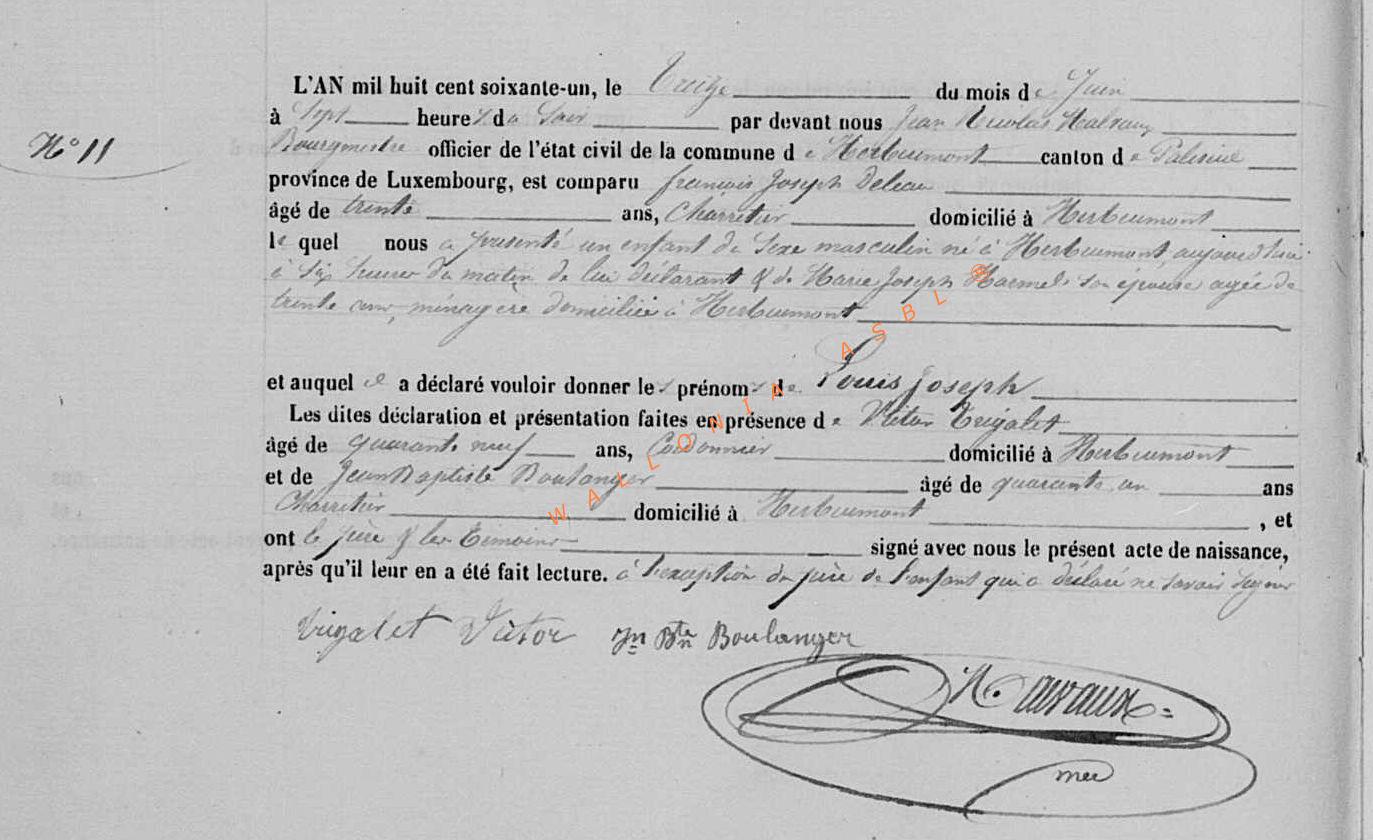 L'AN mil huit cent soixante-un, le treize du mois de Juin
à Sept heures du Soir par devant nous Jean Nicolas Halvaux
N° 11
Bourgmestre officier de l'état civil de la commune de Herbeumont canton de Paliseul
province de Luxembourg, est comparu françois Joseph Deleau
âgé de trente ans, Charretier domicilié à Herbeumont
le quel nous a présenté un enfant du Sexe masculin né à Herbeumont aujourd'hui
à six heures du matin de lui déclarant & de Marie Joseph Harmel son épouse agée de
trente ans, ménagere domiciliée à Herbeumont
et auquel il a déclaré vouloir donner les prénoms de Louis Joseph
Les dites déclaration et présentation faites en présence de Victor Trigalet
âgé de quarante neuf ans, Cordonnier domicilié à Herbeumont
et de Jean Baptiste Boulanger âgé de quarante un ans
Charretier domicilié à Herbeumont , et
ont le père & les témoins signé avec nous le présent acte de naissance,
après qu'il leur en a été fait lecture. à l'exception du père de l'enfant qui a déclaré ne savoir signer
Trigalet Victor Jn Bte Boulanger
WALLONIA ASBL ®